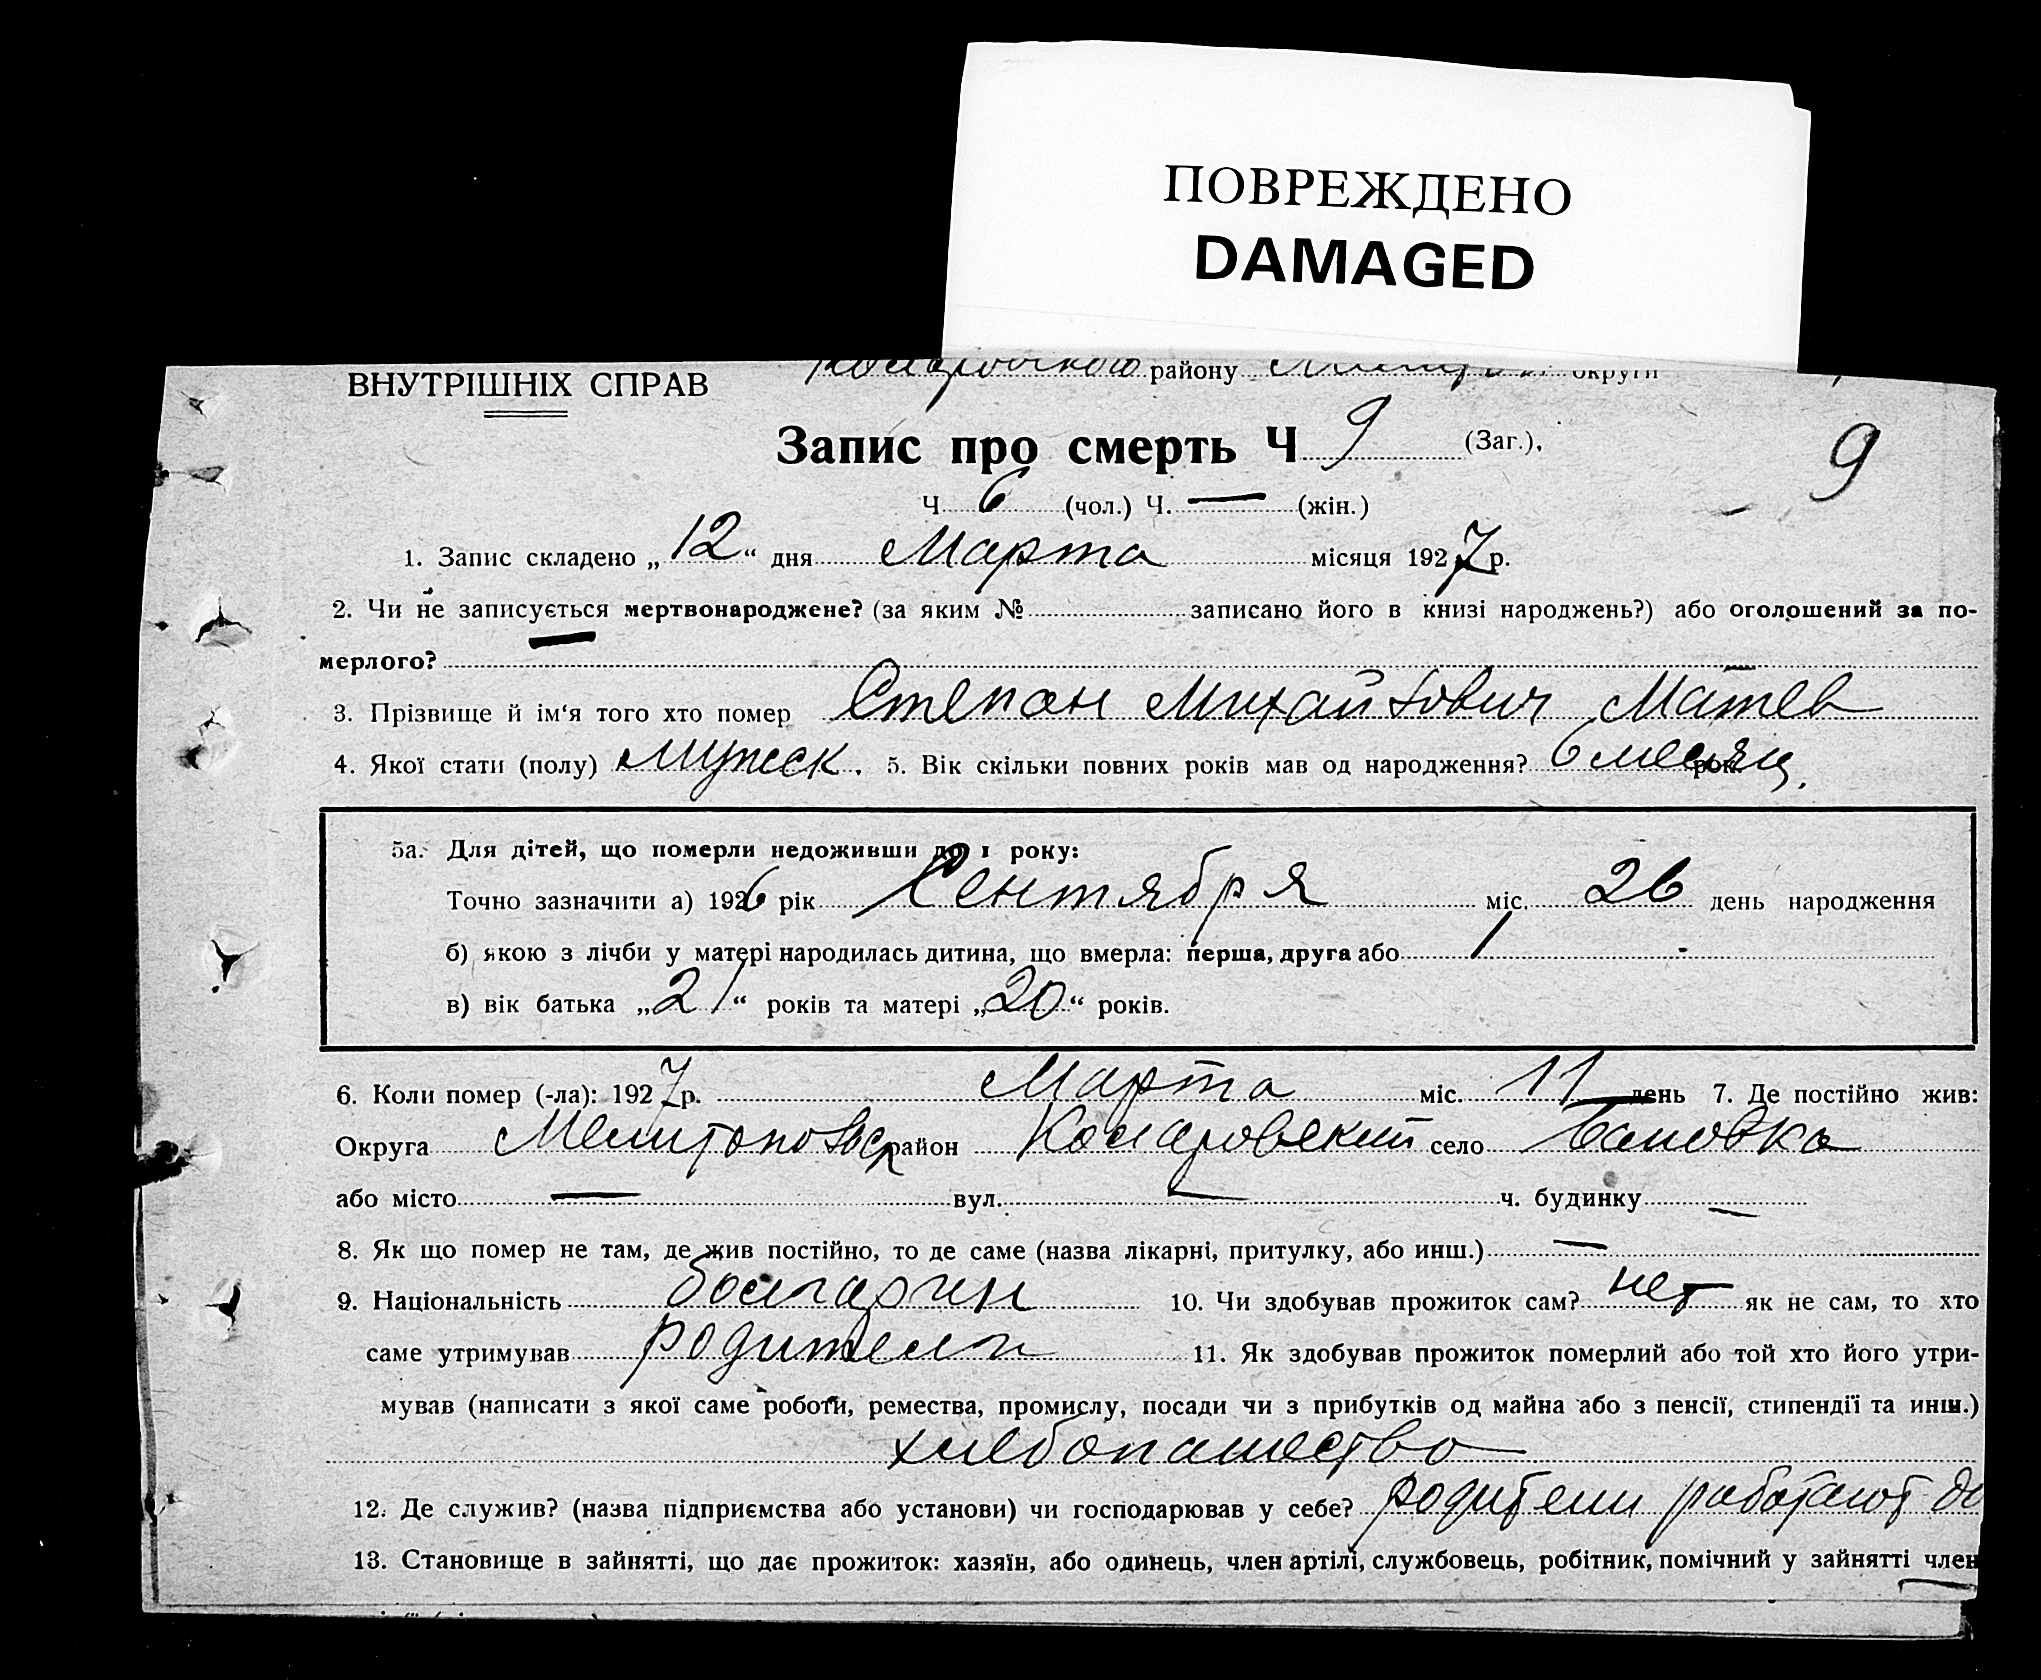 ПОВРЕЖДЕНО
DAMAGED
ВНУТРІШНІХ СПРАВ району округи
Запис про смерть Ч 9 (Заг.).
9
Ч 6 (чол.) Ч. — (жін.)
1. Запис складено „12“ дня Марта місяця 1927 р.
2. Чи не записується мертвонароджене? (за яким № записано його в книзі народжень?) або оголошений за по-
мерлого?
3. Прізвище й ім‘я того хто помер Степан Михайлович Матев
4. Якої стати (полу) Мужск. 5. Вік скільки повних років мав од народження? 6 месяц. рок.
5а. Для дітей, що померли недоживши до 1 року:
Точно зазначити а) 1926 рік Сентября міс. 26 день народження
б) якою з лічби у матері народилась дитина, що вмерла: перша, друга або 1
в) вік батька „21“ років та матері „20“ років.
6. Коли помер (-ла): 1927 р. Марта міс. 11 день 7. Де постійно жив:
Округа Мелитопольск район Коларовский село
або місто — вул. — ч. будинку —
8. Як що помер не там, де жив постійно, то де саме (назва лікарні, притулку, або инш.) —
9. Національність болгарин 10. Чи здобував прожиток сам? нет як не сам, то хто
саме утримував родители 11. Як здобував прожиток померлий або той хто його утри-
мував (написати з якої саме роботи, ремества, промислу, посади чи з прибутків од майна або з пенсії, стипендії та инш.)
хлебопашество
12. Де служив? (назва підприємства або установи) чи господарював у себе? родители работают до
13. Становище в зайнятті, що дає прожиток: хазяїн, або одинець, член артілі, службовець, робітник, помічний у зайнятті член